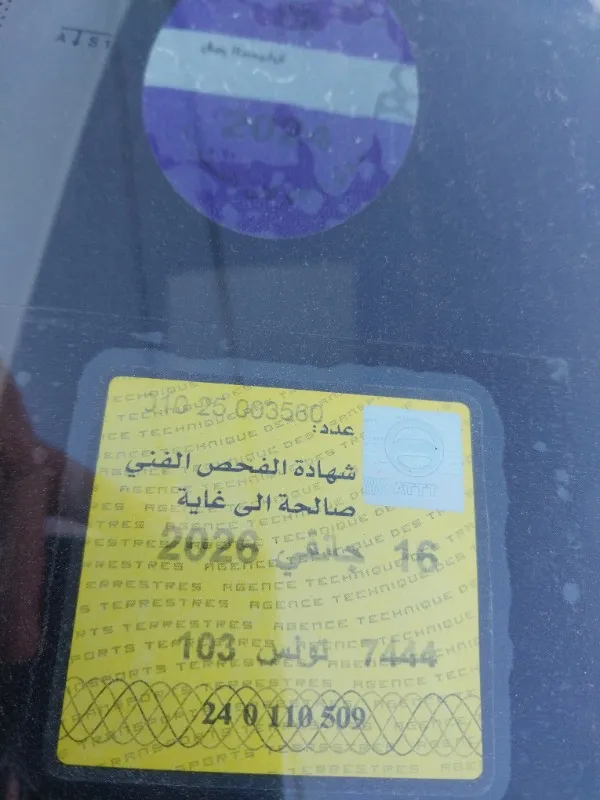 2024
310 25 003560
عدد:
شهادة الفحص الفني
صالحة الى غاية
ATTT
16 جانفي 2026
7444 تونس 103
24 0 110 509
AGENCE TECHNIQUE DES TRANSPORTS TERRESTRES